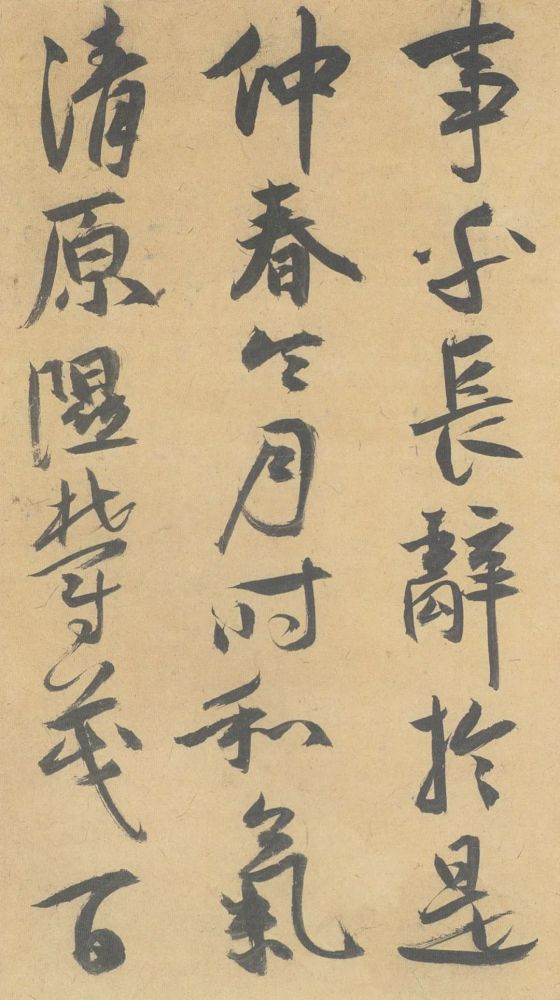 事乎長辭於是
仲春令月時和氣
清原隰鬱茂百